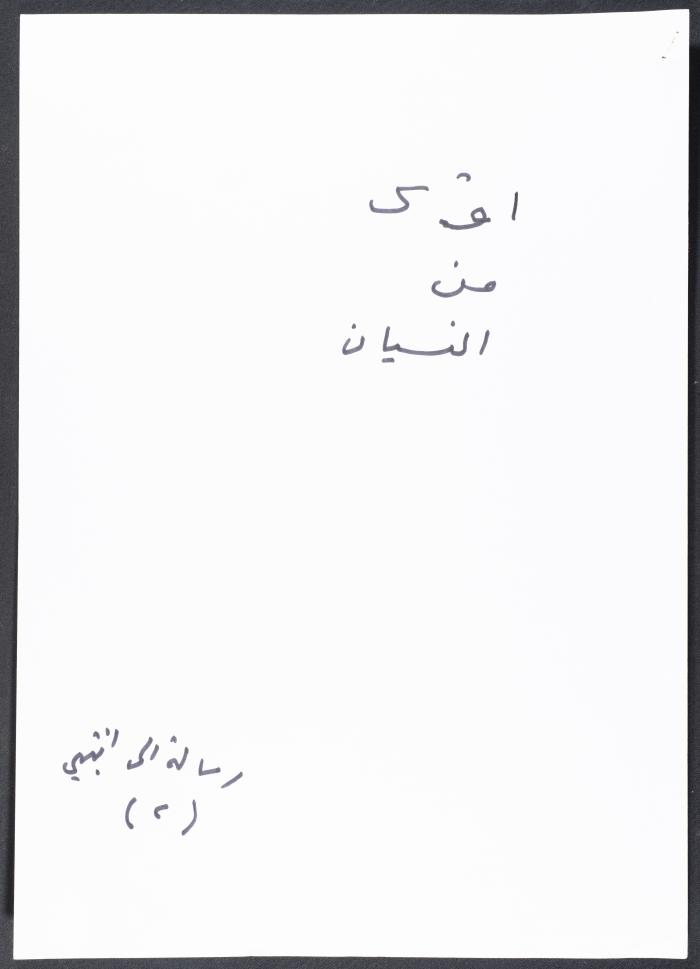 اقوى
من
النسيان
رسالة الى ابنتي
(٢)